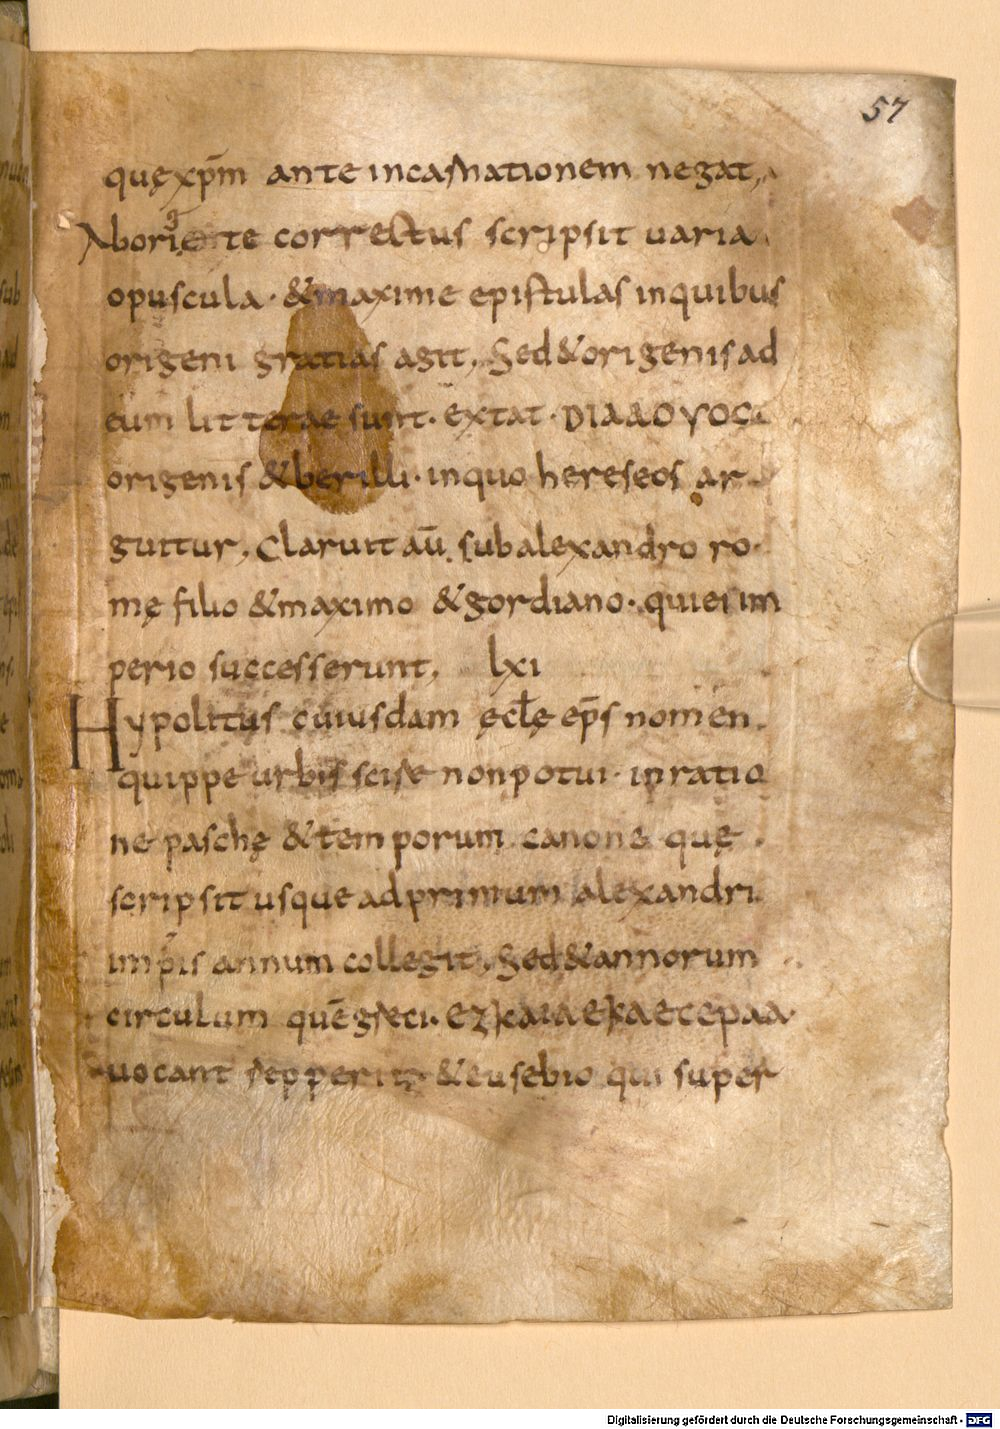 57
quęxp̄m ante incarnationem negat,
Aborigete correctus scripsit uaria
opuscula · & maxime epistulas inquibus
origeni gratias agit, Sed & origenis ad
eum litterae sunt · extat · DIAΛOYOC
origenis & berilli · inquo hereseos ar
guitur, Claruit aū sub alexandro ro
mę filio & maximo & gordiano · quiei im
perio successerunt, lxi
Hypolitus cuiusdam ęclę ep̄s nomen
quippe urbis scire nonpotui · inratio
ne paschę & temporum canone quę
scripsit usque adprimum alexandri
imp̄is annum collegit, Sed & annorum
circulum quē greci · EZKAIAEKAETEPAA
uocant repperit & eusebio qui super
Digitalisierung gefördert durch die Deutsche Forschungsgemeinschaft - DFG